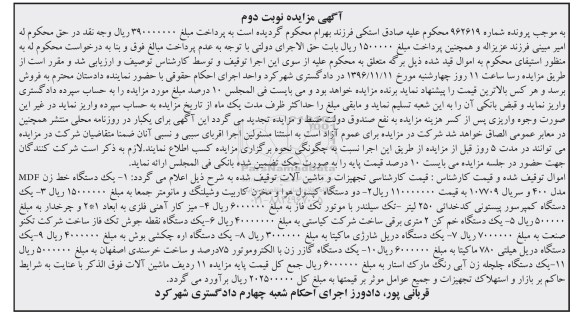 آگهی مزایده نوبت دوم
به موجب پرونده شماره ۹۶۲۶۱۹ محکوم علیه صادق استکی فرزند بهرام محکوم گردیده است به پرداخت مبلغ ۳۹۰۰۰۰۰۰۰ ریال وجه نقد در حق محکوم له
امیر مبینی فرزند عزیزاله و همچنین پرداخت مبلغ ۱۵۰۰۰۰۰ ریال بابت حق الاجرای دولتی با توجه به عدم پرداخت مبالغ فوق و بنا به درخواست محکوم له به
منظور استیفای محکوم به اموال قید شده ذیل برگه متعلق به محکوم علیه از سوی این اجرا توقیف و توسط کارشناس توصیف و ارزیابی شد و مقرر است از
طریق مزایده رسا ساعت ۱۱ روز چهارشنبه مورخ ۱۳۹۶/۱۱/۱۱ در دادگستری شهرکرد واحد اجرای احکام حقوقی با حضور نماینده دادستان محترم به فروش
برسد و هر کس بالاترین قیمت را پیشنهاد نماید برنده مزایده خواهد بود و می بایست فی المجلس ۱۰ درصد مبلغ مورد مزایده را به حساب سپرده دادگستری
واریز نماید و قبض بانکی آن را به این شعبه تسلیم نماید و مابقی مبلغ را حداکثر ظرف مدت یک ماه از تاریخ مزایده به حساب سپرده واریز نماید در غیر این
صورت وجوه واریزی پس از کسر هزینه مزایده به نفع صندوق دولت ضبط و مزایده تجدید می گردد این آگهی برای یکبار در روزنامه محلی منتشر همچنین
در معابر عمومی الصاق خواهد شد شرکت در مزایده برای عموم آزاد است به استثنا مسئولین اجرا اقربای سببی و نسبی آنان ضمنا متقاضیان شرکت در مزایده
می توانند در مدت ۵ روز قبل از مزایده از طریق این اجرا نسبت به چگونگی نحوه برگزاری مزایده کسب اطلاع نمایند.لازم به ذکر است شرکت کنندگان
جهت حضور در جلسه مزایده می بایست ۱۰ درصد قیمت پایه را به صورت چک تضمین شده بانکی فی المجلس ارائه نمایند.
اموال توقیف شده و قیمت کارشناس : قیمت کارشناسی تجهیزات و ماشین آلات توقیف شده به شرح ذیل اعلام می گردد: ۱- یک دستگاه خط زن MDF
مدل ۴۰۰ و سریال ۱۰۷۷۰۹ به قیمت ۱۱۰۰۰۰۰۰۰ ریال۲- دو دستگاه کپسول هوا و مخزن کاربیت وشیلنگ و مانومتر جمعا به مبلغ ۱۵۰۰۰۰۰۰ ریال ۳- یک
دستگاه کمپرسور پیستونی کدخدائی ۲۵۰ لیتر -تک سیلندر با موتور تک فاز به مبلغ ۶۰۰۰۰۰۰ ریال ۴- میز کار آهنی فلزی به ابعاد ۲*۱ و چرخدار به مبلغ
۵۰۰۰۰۰ ریال ۵- یک دستگاه خم کن ۲ متری برقی ساخت شرکت کیاستی به مبلغ ۴۰۰۰۰۰۰۰ ریال ۶-یک دستگاه نقطه جوش تک فاز ساخت شرکت تکنو
صنعت به مبلغ ۷۰۰۰۰۰۰ ریال ۷- یک دستگاه دریل شارژی ماکیتا به مبلغ ۳۰۰۰۰۰۰ ریال ۸- یک دستگاه اره چکشی بوش به مبلغ ۴۰۰۰۰۰۰ ریال ۹-یک
دستگاه دریل هیلتی ۷۸۰ ماکیتا به مبلغ ۶۰۰۰۰۰۰ ریال۱۰- یک دستگاه گازر زن با الکتروموتور ۷۵درصد و ساخت خرسندی اصفهان به مبلغ ۵۰۰۰۰۰۰ ریال
۱۱-یک دستگاه چلچله زن آبی رنگ مارک استار به مبلغ ۶۰۰۰۰۰۰ ریال جمع کل قیمت پایه مزایده ۱۱ ردیف ماشین آلات فوق الذکر با عنایت به شرایط
حاکم بر بازار و استهلاک تجهیزات و جمیع عوامل موثر بر قیمتها به مبلغ کل ۲۰۲۵۰۰۰۰۰ ریال برآورد می گردد.
قربانی پور، دادورز اجرای احکام شعبه چهارم دادگستری شهرکرد